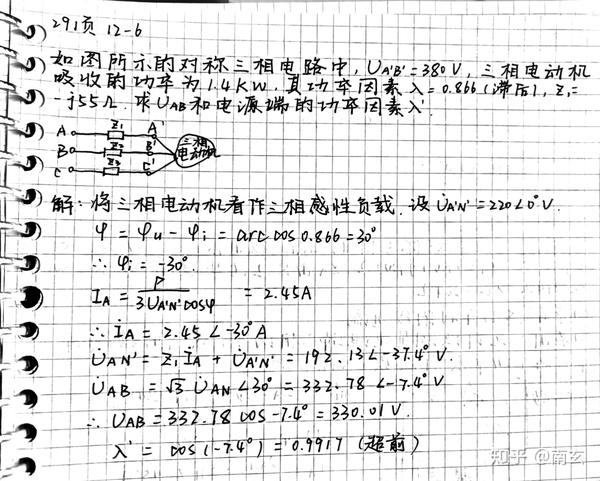 291页 12-6
如图所示的对称三相电路中,U_{A'B'}=380V,三相电动机
吸收的功率为1.4KW,其功率因素λ=0.866(滞后),Z₁=
-j55Ω.求U_{AB}和电源端的功率因素λ'.
A Z₁ A'
B Z₂ B'
C Z₃ C'
三相
电动机
解:将三相电动机看作三相感性负载.设U̇_{A'N'}=220∠0°V.
φ=φu-φi=arc cos 0.866=30°
∴φi=-30°.
I_A=P/(3U_{A'N'}cosφ) =2.45A
∴İ_A=2.45∠-30°A
U̇_{AN'}=Z₁İ_A+U̇_{A'N'}=192.13∠-37.4°V.
U̇_{AB}=√3 U̇_{AN}∠30°=332.78∠-7.4°V
∴U_{AB}=332.78 cos-7.4°=330.01V.
λ'=cos(-7.4°)=0.9917(超前)
知乎 @南玄